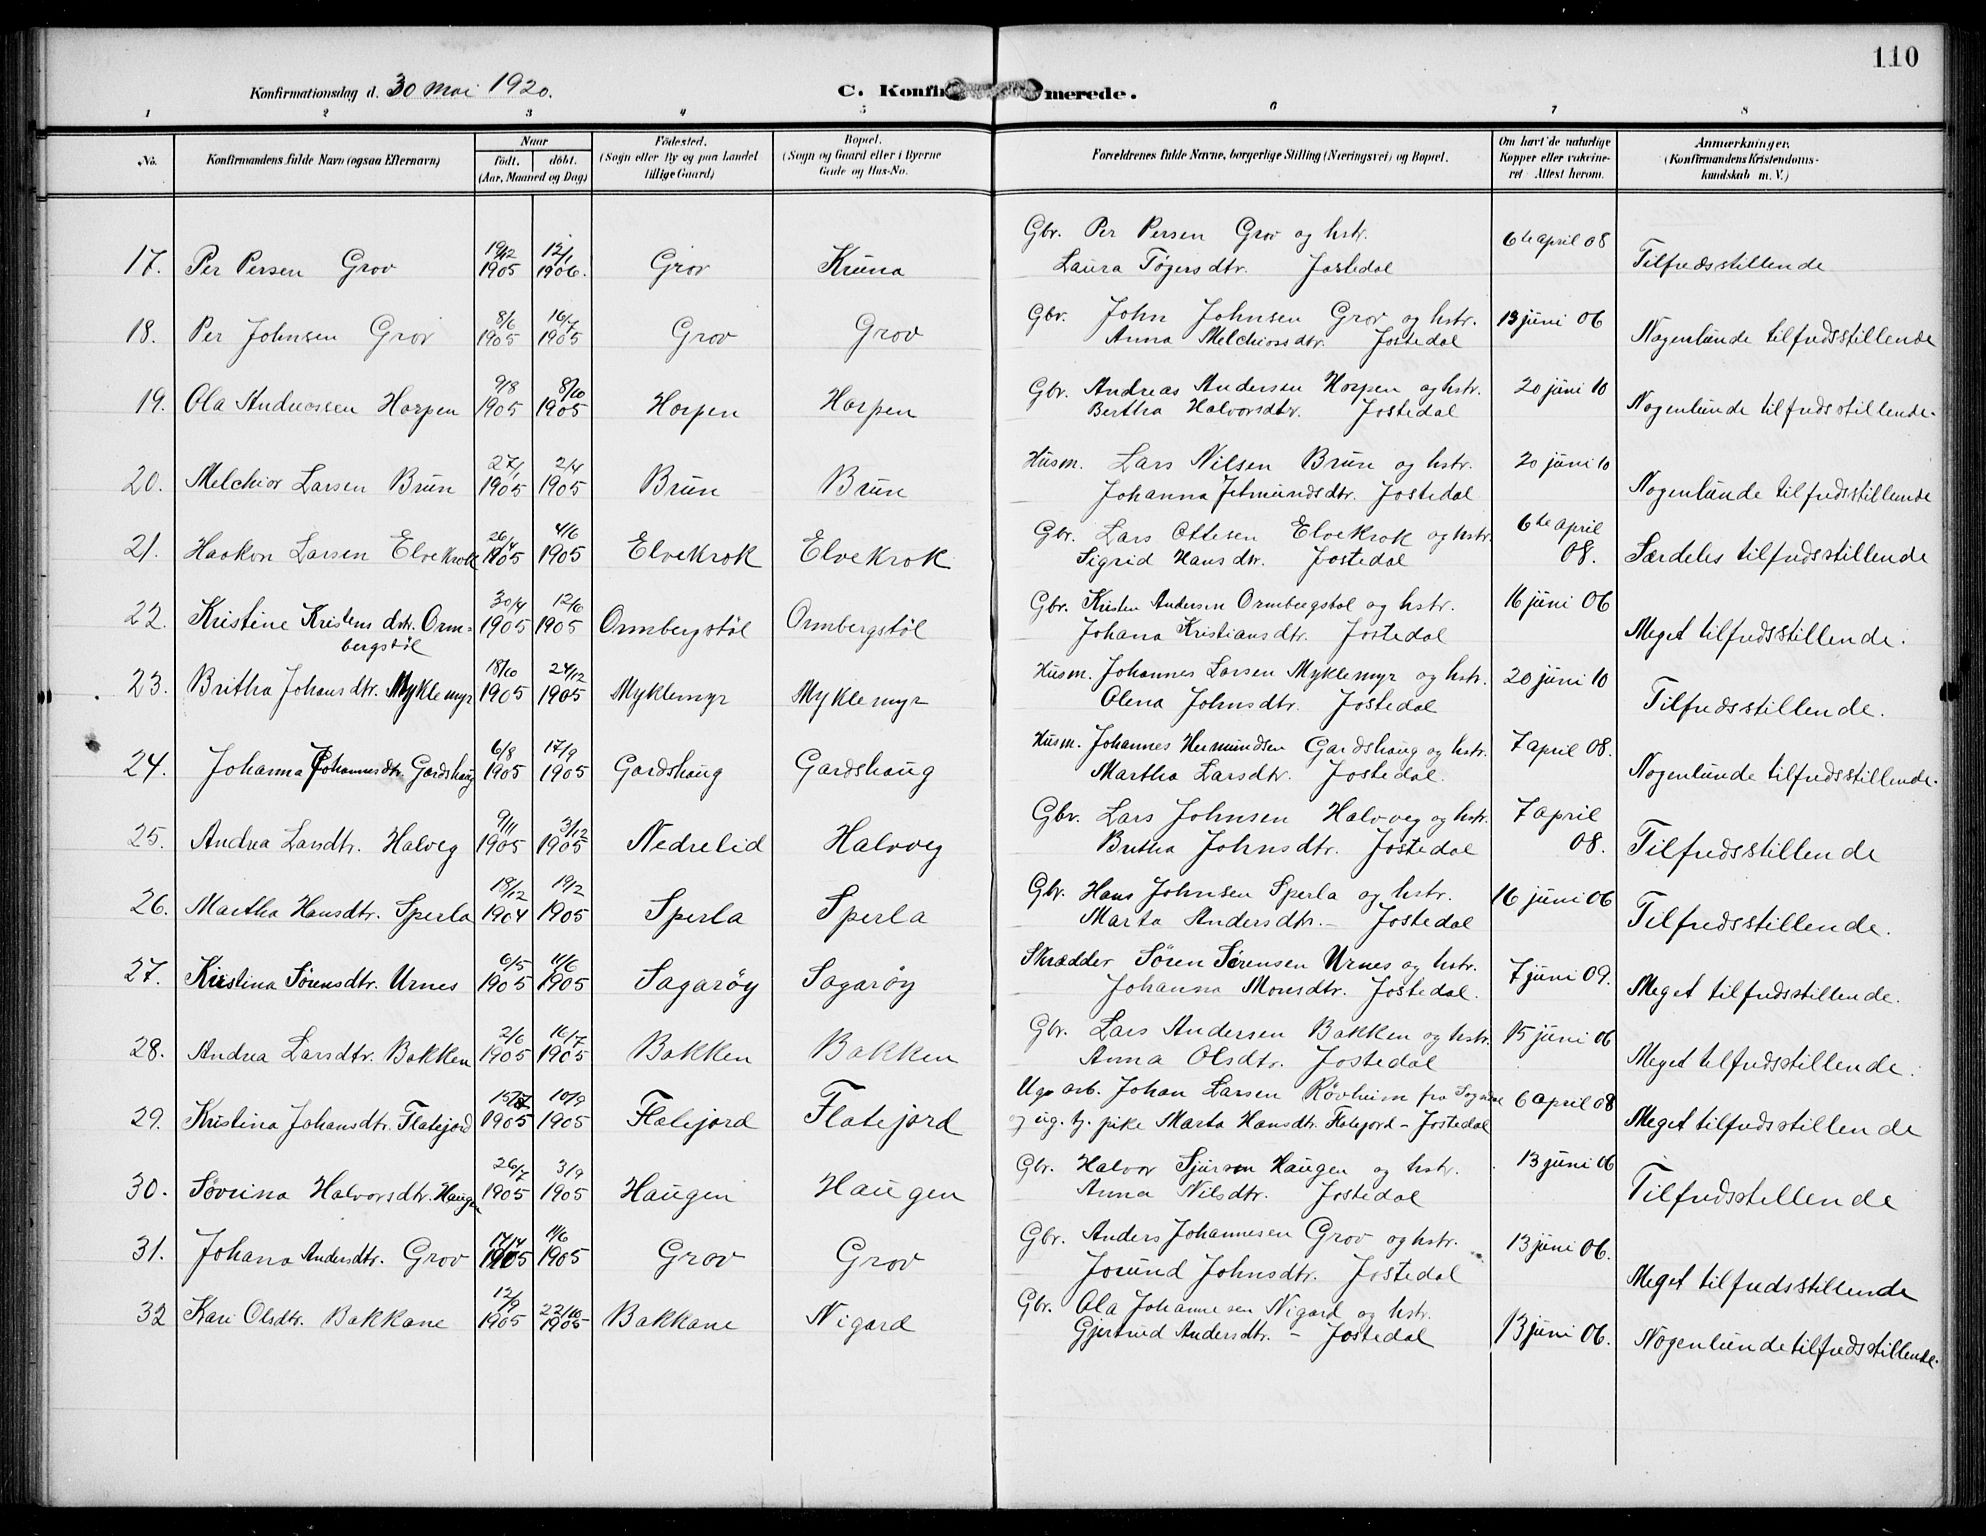 110
Konfirmationsdag d. 30 mai 1920.
C. Konfirmerede.
1 2 3 4 5 6 7 8
No. Konfirmandens fulde Navn (ogsaa Efternavn) Naar født. døbt. (Aar, Maaned og Dag) Fødested. (Sogn eller By og paa Landet tillige Gaard) Bopæl. (Sogn og Gaard eller i Byerne Gade og Hus-No. Forældrenes fulde Navne, borgerlige Stilling (Næringsvei) og Bopæl. Om havt de naturlige Kopper eller vakcineret Attest herom. Anmærkninger. (Konfirmandens Kristendomskundskab m. V.)
17. Per Persen Grov 19/12 1905 12/1 1906. Grov Kruna Gbr. Per Persen Grov og hstr. 6te april 08 Tilfredsstillende
Laura Tøgersdtr. Jostedal
18. Per Johnsen Grov 8/6 1905 16/7 1905 Grov Grov Gbr. John Johnsen Grov og hstr. 13 juni 06 Nogenlunde tilfredsstillende
Anna Melchiorsdtr. Jostedal
19. Ola Andreassen Horpen 9/8 1905 8/10 1905 Horpen Horpen Gbr. Andreas Andersen Horpen og hstr. 20 juni 10 Nogenlunde tilfredsstillende.
Bertha Halvorsdtr. Jostedal
20. Melchior Larsen Brun 27/1 1905 2/4 1905 Brun Brun Husm. Lars Nilsen Brun og hstr. 20 juni 10 Nogenlunde tilfredsstillende
Johanna Jetmundsdtr. Jostedal
21. Haakon Larsen Elvekrok 26/4 1905 4/6 1905 Elvekrok Elvekrok Gbr. Lars Ottesen Elvekrok og hstr. 6te april 08. Særdeles tilfredsstillende
Sigrid Hansdtr. Jostedal
22. Kristine Kristensdtr. Ormbergstøl 30/4 1905 12/6 1905 Ormbergstøl Ormbergstøl Gbr. Kristen Andersen Ormbergstøl og hstr. 16 juni 06 Meget tilfredsstillende.
Johana Kristiansdtr. Jostedal
23. Britha Johansdtr. Myklemyr 18/10 1905 24/12 1905 Myklemyr Myklemyr Husm. Johannes Larsen Myklemyr og hstr. 20 juni 10 Tilfredsstillende.
Olena Johnsdtr. Jostedal
24. Johanna Johannesdtr. Gardshaug 6/8 1905 17/9 1905 Gardshaug Gardshaug Husm. Johannes Hermundsen Gardshaug og hstr. 7 april 08. Nogenlunde tilfredsstillende.
Martha Larsdtr. Jostedal.
25. Andrea Larsdtr. Halveg 9/11 1905 3/12 1905 Nedrelid Halvveg Gbr. Lars Johnsen Halvveg og hstr. 7 april 08. Tilfredsstillende
Britha Johnsdtr. Jostedal
26. Martha Hansdtr. Sperla 18/12 1904 19/2 1905 Sperla Sperla Gbr. Hans Johnsen Sperla og hstr. 16 juni 06 Tilfredsstillende.
Marta Andersdtr. – Jostedal
27. Kristina Sørensdtr. Urnes 6/5 1905 11/6 1905 Sagarøy Sagarøy Skrædder Søren Sørensen Urnes og hstr. 7 juni 09. Meget tilfredsstillende.
Johanna Monsdtr. Jostedal.
28. Andrea Larsdtr. Bakken 2/6 1905 16/7 1905 Bakken Bakken Gbr. Lars Andersen Bakken og hstr. 15 juni 06 Meget tilfredsstillende.
Anna Olsdtr. Jostedal
29. Kristina Johansdtr. Flatejord 1905 10/9 1905 Flatejord Flatejord Ugs arb. Johan Larsen Røvheim fra Sogndal 6 april 08 Meget tilfredsstillende
og ug. tj. pike Marta Hansdtr. Flatejord – Jostedal
30. Søvrina Halvorsdtr. Haugen 26/7 1905 3/9 1905 Haugen Haugen Gbr. Halvor Sjursen Haugen og hstr. 13 juni 06 Tilfredsstillende
Anna Nilsdtr. Jostedal
31. Johana Andersdtr. Grov 17/4 1905 11/6 1905 Grov Grov Gbr. Anders Johannesen Grov og hstr. 13 juni 06. Meget tilfredsstillende
Jorund Johnsdtr. Jostedal
32 Kari Olsdtr. Bakkane 12/9 1905 22/10 1905 Bakkane Nigard Gbr. Ola Johannesen Nigard og hstr. 13 juni 06. Nogenlunde tilfredsstillende.
Gjertrud Andersdtr. – Jostedal